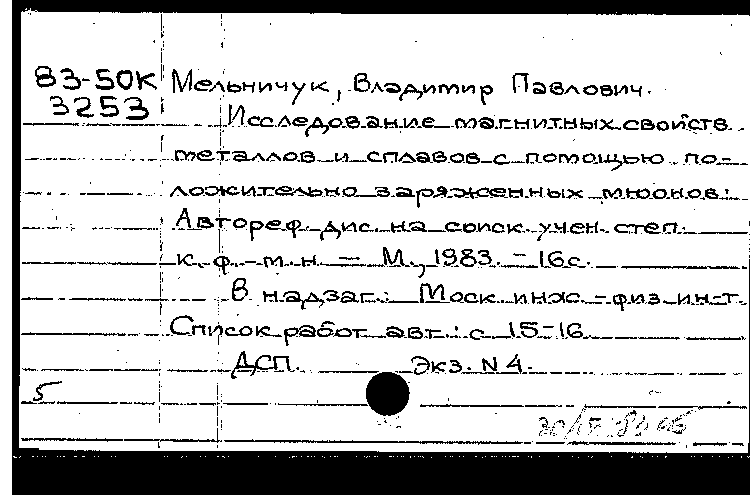 83-50К Мельничук, Владимир Павлович.
3253 Исследование магнитных свойств
металлов и сплавов с помощью по-
ложительно заряженных мюонов:
Автореф. дис. на соиск. учен. степ.
к. ф.-м. н. – М., 1983. – 16 с.
В надзаг.: Моск. инж.-физ. ин-т.
Список работ авт.: с 15-16.
ДСП. Экз. N 4.
5